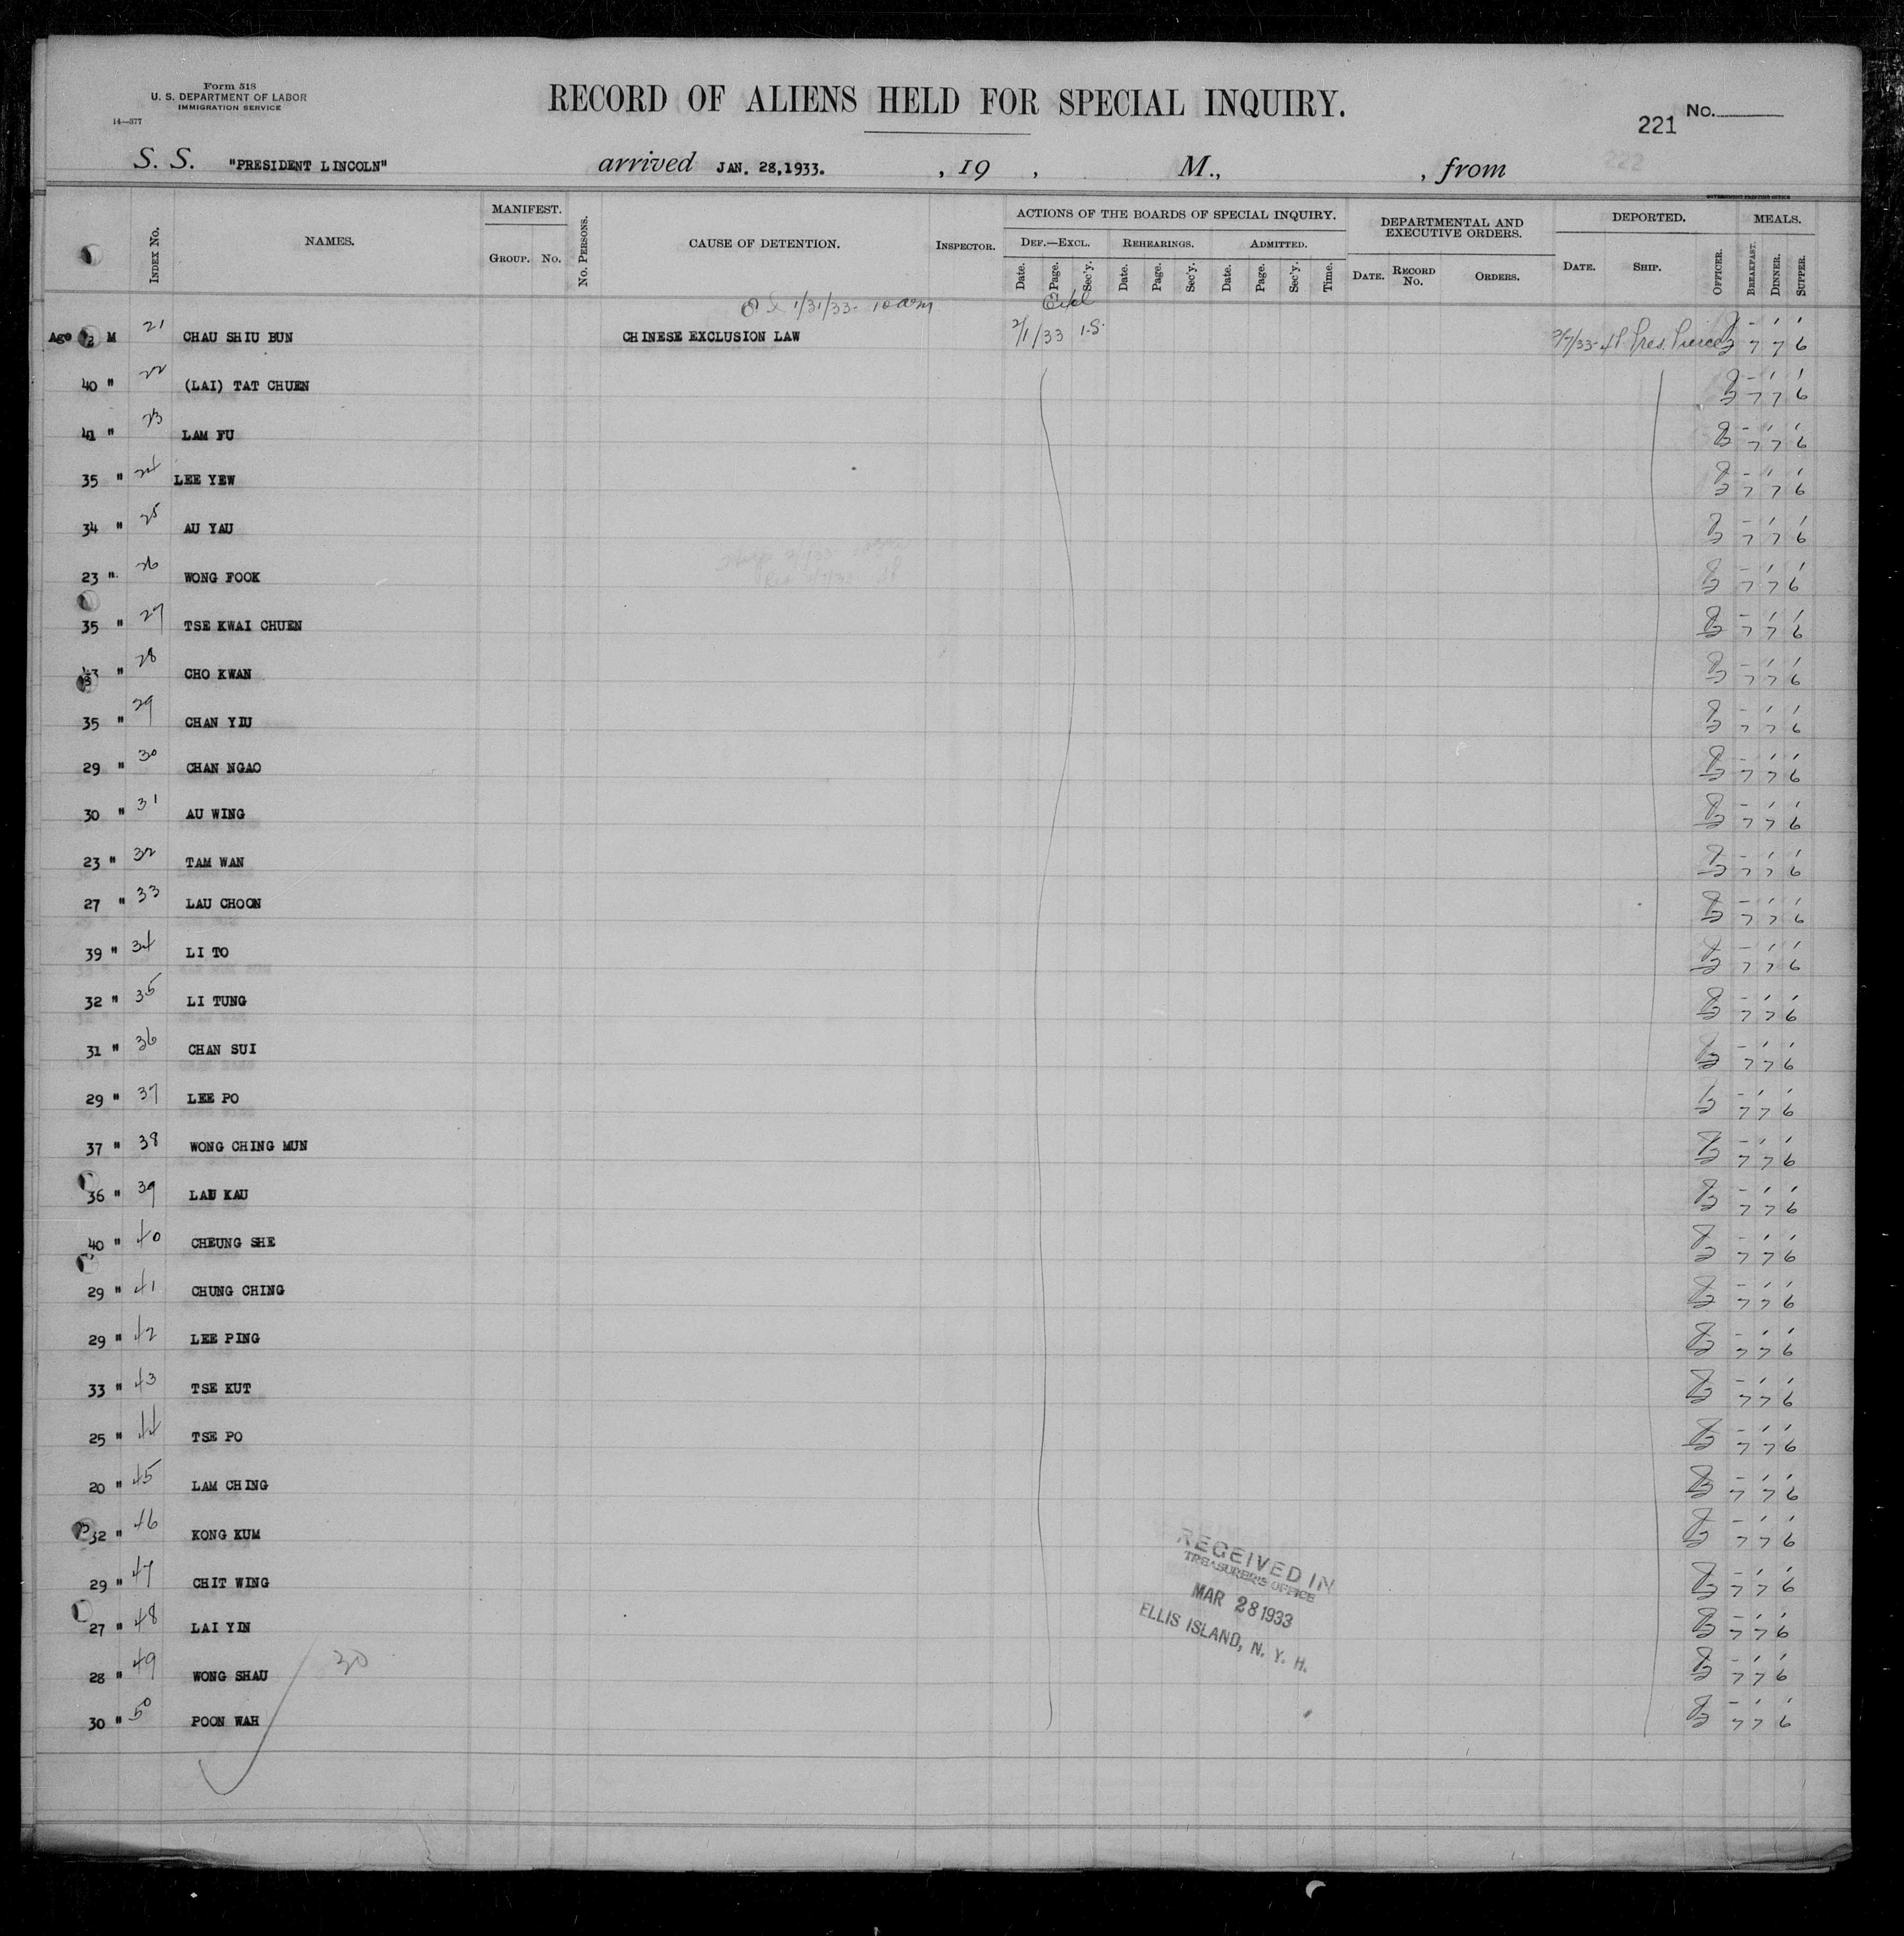 Form 518
U. S. DEPARTMENT OF LABOR
IMMIGRATION SERVICE
14—377
RECORD OF ALIENS HELD FOR SPECIAL INQUIRY.
221 No.
222
S. S. "PRESIDENT LINCOLN" arrived JAN. 28,1933. , 19 , M., , from
GOVERNMENT PRINTING OFFICE
INDEX No. NAMES. MANIFEST. GROUP. No. No. PERSONS. CAUSE OF DETENTION. INSPECTOR. ACTIONS OF THE BOARDS OF SPECIAL INQUIRY. DEF.—EXCL. Date. Page. Sec'y. REHEARINGS. Date. Page. Sec'y. ADMITTED. Date. Page. Sec'y. Time. DEPARTMENTAL AND EXECUTIVE ORDERS. DATE. RECORD No. ORDERS. DEPORTED. DATE. SHIP. OFFICER. MEALS. BREAKFAST. DINNER. SUPPER.
1/31/33- 10 am Excl
Age M 21 CHAU SHIU BUN CHINESE EXCLUSION LAW 2/1/33 I.S. Pres. Pierce - 1 1
7 7 6
40 " 22 (LAI) TAT CHUEN - 1 1
7 7 6
41 " 23 LAM FU - 1 1
7 7 6
35 " 24 LEE YEW - 1 1
7 7 6
34 " 25 AU YAU - 1 1
7 7 6
23 " 26 WONG FOOK - 1 1
7 7 6
35 " 27 TSE KWAI CHUEN - 1 1
7 7 6
" 28 CHO KWAN - 1 1
7 7 6
35 " 29 CHAN YIU - 1 1
7 7 6
29 " 30 CHAN NGAO - 1 1
7 7 6
30 " 31 AU WING - 1 1
7 7 6
23 " 32 TAM WAN - 1 1
7 7 6
27 " 33 LAU CHOON - 1 1
7 7 6
39 " 34 LI TO - 1 1
7 7 6
32 " 35 LI TUNG - 1 1
7 7 6
31 " 36 CHAN SUI - 1 1
7 7 6
29 " 37 LEE PO - 1 1
7 7 6
37 " 38 WONG CHING MUN - 1 1
7 7 6
36 " 39 LAU KAU - 1 1
7 7 6
40 " 40 CHEUNG SHE - 1 1
7 7 6
29 " 41 CHUNG CHING - 1 1
7 7 6
29 " 42 LEE PING - 1 1
7 7 6
33 " 43 TSE KUT - 1 1
7 7 6
25 " 44 TSE PO - 1 1
7 7 6
20 " 45 LAM CHING - 1 1
7 7 6
32 " 46 KONG KUM - 1 1
7 7 6
29 " 47 CHIT WING - 1 1
7 7 6
27 " 48 LAI YIN - 1 1
7 7 6
28 " 49 WONG SHAU 30 - 1 1
7 7 6
30 " 50 POON WAH - 1 1
7 7 6
RECEIVED IN
TREASURER'S OFFICE
MAR 28 1933
ELLIS ISLAND, N. Y. H.